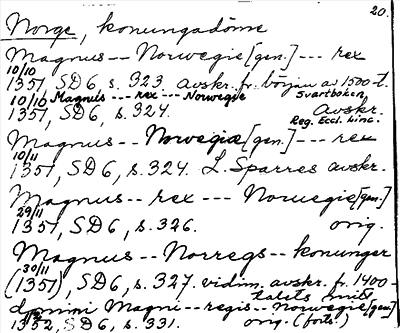 20.
Norge, konungadöme
Magnus -- Norwegie [gen.] --- rex
10/10 1351, SD6, s. 323. avskr. fr. början av 1500-t.
Svartboken
10/10 Magnus --- rex --- Norwegie
1351, SD6, s. 324. Avskr.
Reg. Eccl. Linc.
Magnus -- Norwegiæ [gen.] --- rex
10/11 1351, SD6, s. 324. L. Sparres avskr.
Magnus -- rex --- Norwegie [gen.]
29/11 1351, SD6, s. 326. orig.
Magnus -- Norregs -- konunger
30/11 (1351), SD6, s. 327. vidim. avskr. fr. 1400-
talets mitt
domini Magni -- regis -- Norwegie [gen.]
1352, SD6, s. 331. orig. (forts.